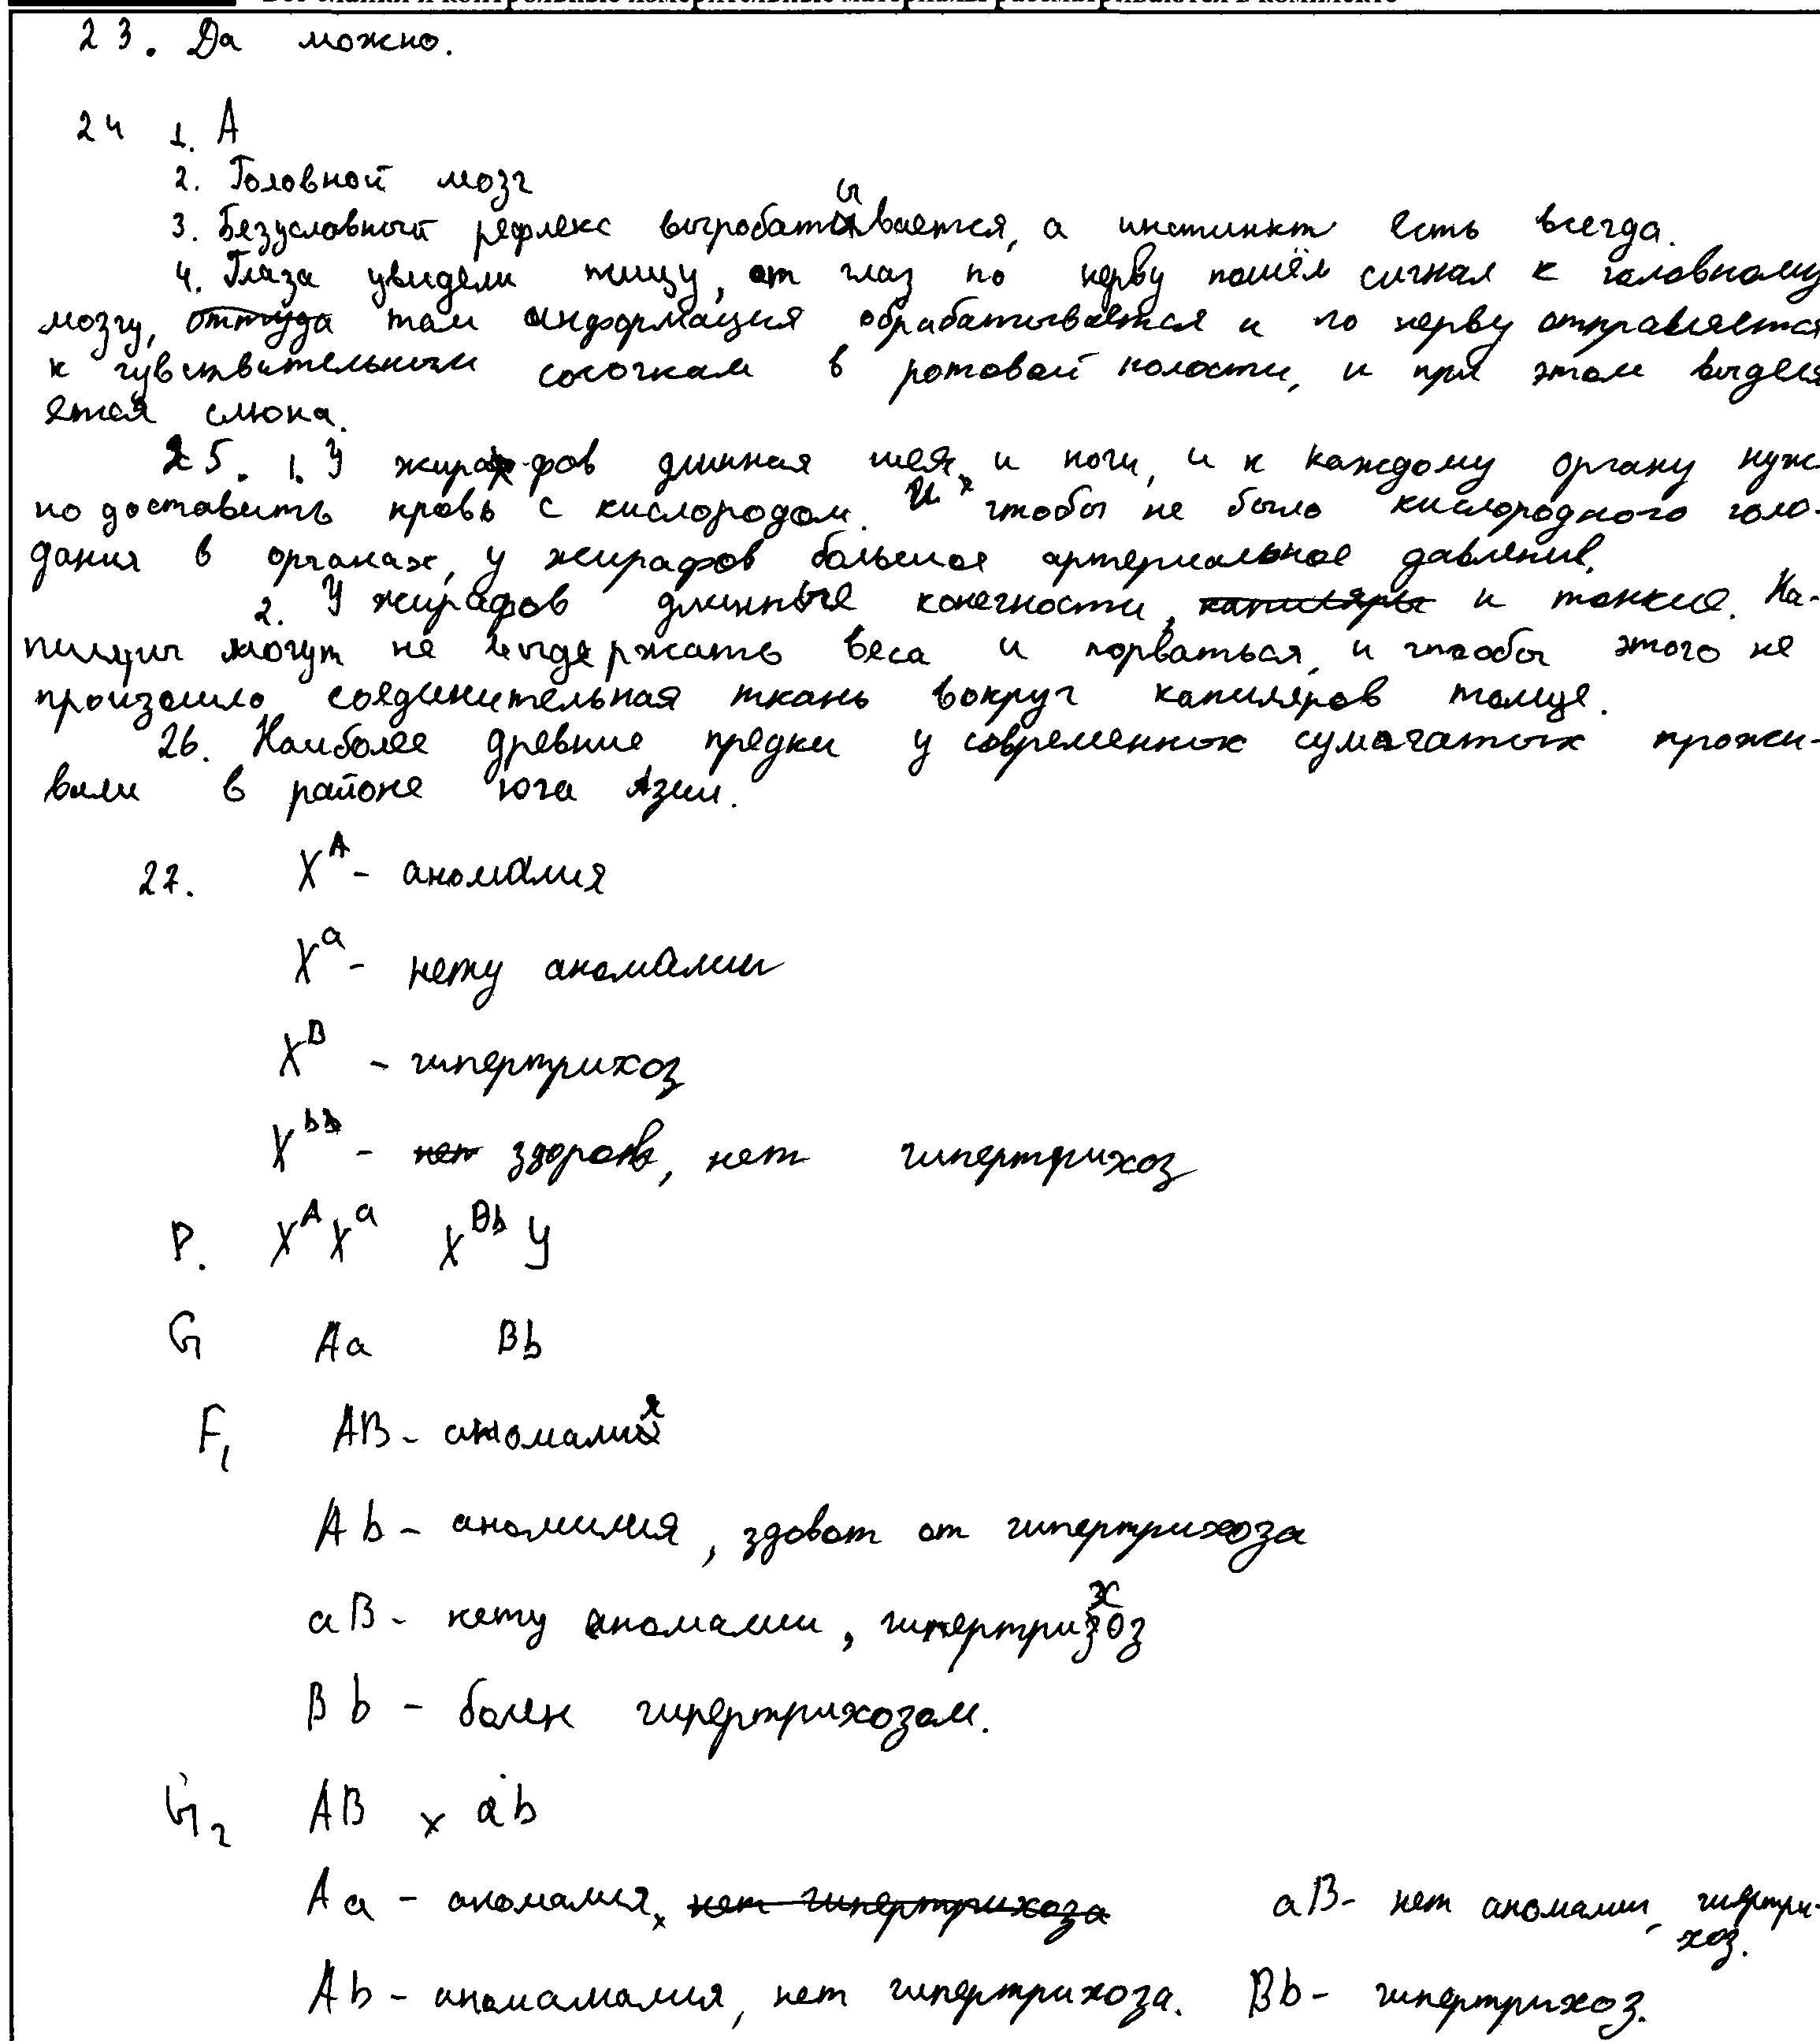 23. Да можно.
24 1. А
2. Головной мозг
3. Безусловный рефлекс выробатывается, а инстинкт есть всегда.
4. Глаза увидели пищу, от глаз по нерву пошёл сигнал к головному
мозгу, оттуда там информация обрабатывается и по нерву отправляется
к чувствительным сосочкам в ротовой полости, и при этом выделя
ется слюна.
25. 1. У жирафов длинная шея, и ноги, и к каждому органу нуж-
но доставить кровь с кислородом. И чтобы не было кислородного голо-
дания в органах, у жирафов большое артериальное давление.
2. У жирафов длинные конечности, капиляры и тонкие. Ка-
могут не выдержать веса и порваться, и чтобы этого не
произошло соединительная ткань вокруг капиляров толще.
26. Наиболее древние предки у современных сумчатых прожи-
вали в районе юга Азии.
27. X^A - аномалия
X^a - нету аномалии
X^B - гипертрихоз
X^bb - нет здоровъ, нет гипертрихоз
P. X^A X^a X^Bb У
G Aa Bb
F₁ AB - аномалия
Ab - аномилия, здовот от гипертрихоза
aB - нету аномалии, гипертрихоз
Bb - болен гипертрихозом.
G₂ AB x ab
Aa - аномалия, нет гипертрихоза aB - нет аномалии, гипертри-
хоз.
Ab - аномамалия, нет гипертрихоза. Bb - гипертрихоз.